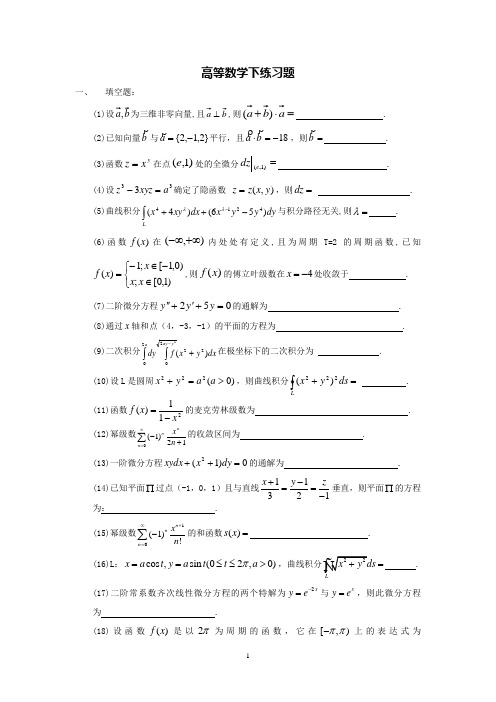 高等数学下练习题
一、 填空题:
(1)设a⃗,b⃗为三维非零向量,且a⃗⊥b⃗,则(a⃗+b⃗)·a⃗= .
(2)已知向量b⃗与a⃗={2,-1,2}平行，且a⃗·b⃗=-18，则b⃗= .
(3)函数z=xʸ在点(e,1)处的全微分dz|(e,1)= .
(4)设z³-3xyz=a³确定了隐函数 z=z(x,y)，则dz= .
(5)曲线积分∫_L(x⁴+4xy^λ)dx+(6x^{λ-1}y²-5y⁴)dy与积分路径无关,则λ= .
(6)函数f(x)在(-∞,+∞)内处处有定义,且为周期 T=2 的周期函数,已知
f(x)={-1; x∈[-1,0) x; x∈[0,1),则f(x)的傅立叶级数在x=-4处收敛于 .
(7)二阶微分方程y″+2y′+5y=0的通解为 .
(8)通过x轴和点（4，-3，-1）的平面的方程为 .
(9)二次积分∫_0^{2a}dy∫_0^{√(2ay-y²)}f(x²+y²)dx在极坐标下的二次积分为 .
(10)设 L 是圆周x²+y²=a²(a>0)，则曲线积分∮_L(x²+y²)²ds= .
(11)函数f(x)=1/(1-x²)的麦克劳林级数为 .
(12)幂级数∑_{n=0}^∞(-1)ⁿxⁿ/(2n+1)的收敛区间为 .
(13)一阶微分方程xydx+(x²+1)dy=0的通解为 .
(14)已知平面∏过点(-1，0，1)且与直线(x+1)/3=(y-1)/2=z/(-1)垂直，则平面∏的方程
为: .
(15)幂级数∑_{n=0}^∞(-1)ⁿx^{n+1}/n!的和函数s(x)= .
(16)L: x=acost,y=asint(0≤t≤2π,a>0)，曲线积分∮_L√(x²+y²)ds= .
(17)二阶常系数齐次线性微分方程的两个特解为y=e^{-2x}与y=e^x，则此微分方程
为 .
(18)设函数f(x)是以2π为周期的函数，它在[-π,π)上的表达式为
1